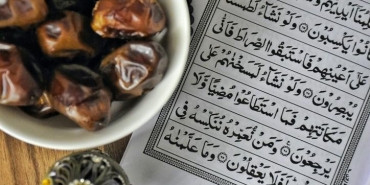 اَيْدِيْهِمْ
كَانُوْا يَكْسِبُوْنَ ۝ وَلَوْ نَشَآءُ لَطَمَسْنَا
عَلٰٓى اَعْيُنِهِمْ فَاسْتَبَقُوا الصِّرَاطَ فَاَنّٰى
يُبْصِرُوْنَ ۝ وَلَوْ نَشَآءُ لَمَسَخْنٰهُمْ عَلٰى
مَكَانَتِهِمْ فَمَا اسْتَطَاعُوْا مُضِيًّا وَّلَا
يَرْجِعُوْنَ ۝ وَمَنْ نُّعَمِّرْهُ نُنَكِّسْهُ فِى
اَفَلَا يَعْقِلُوْنَ ۝ وَمَا عَلَّمْنٰهُ